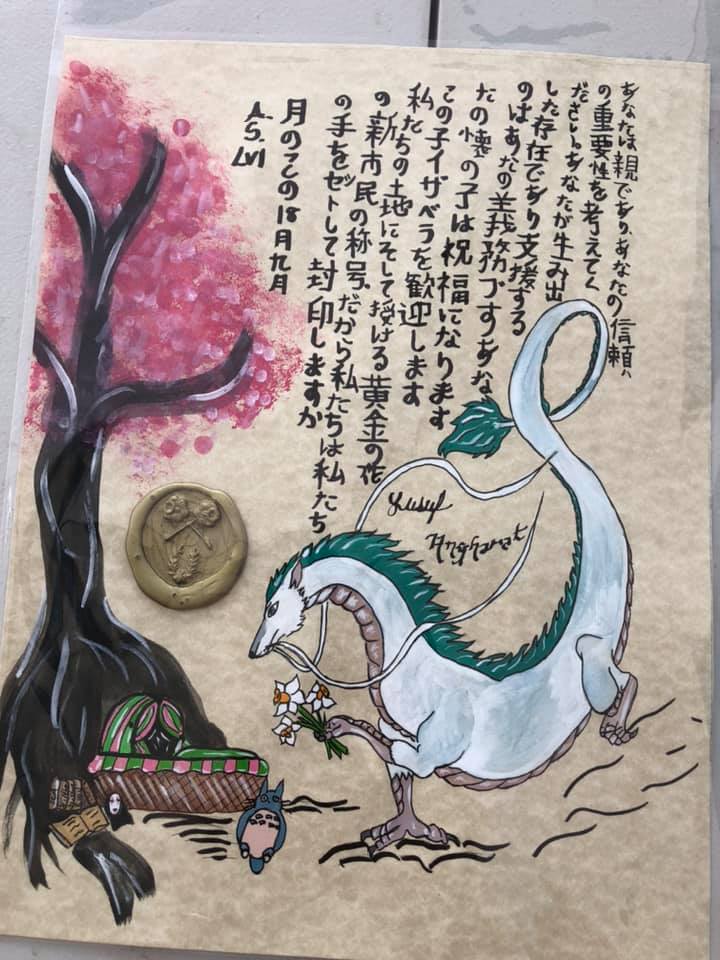 あなたは親であり、あなたの信頼への
の重要性を考えてく
ださい。あなたが生み出
した存在であり支援する
のはあなたの義務ですあな
たの懐の子は祝福になります
この子イザベラを歓迎します
私たちの土地にそして授ける黄金の花
の新市民の称号だから私たちは私たち
の手をセットして封印しますか
月のこの18月九月
A.S. LVI
Yusuf
Angharat